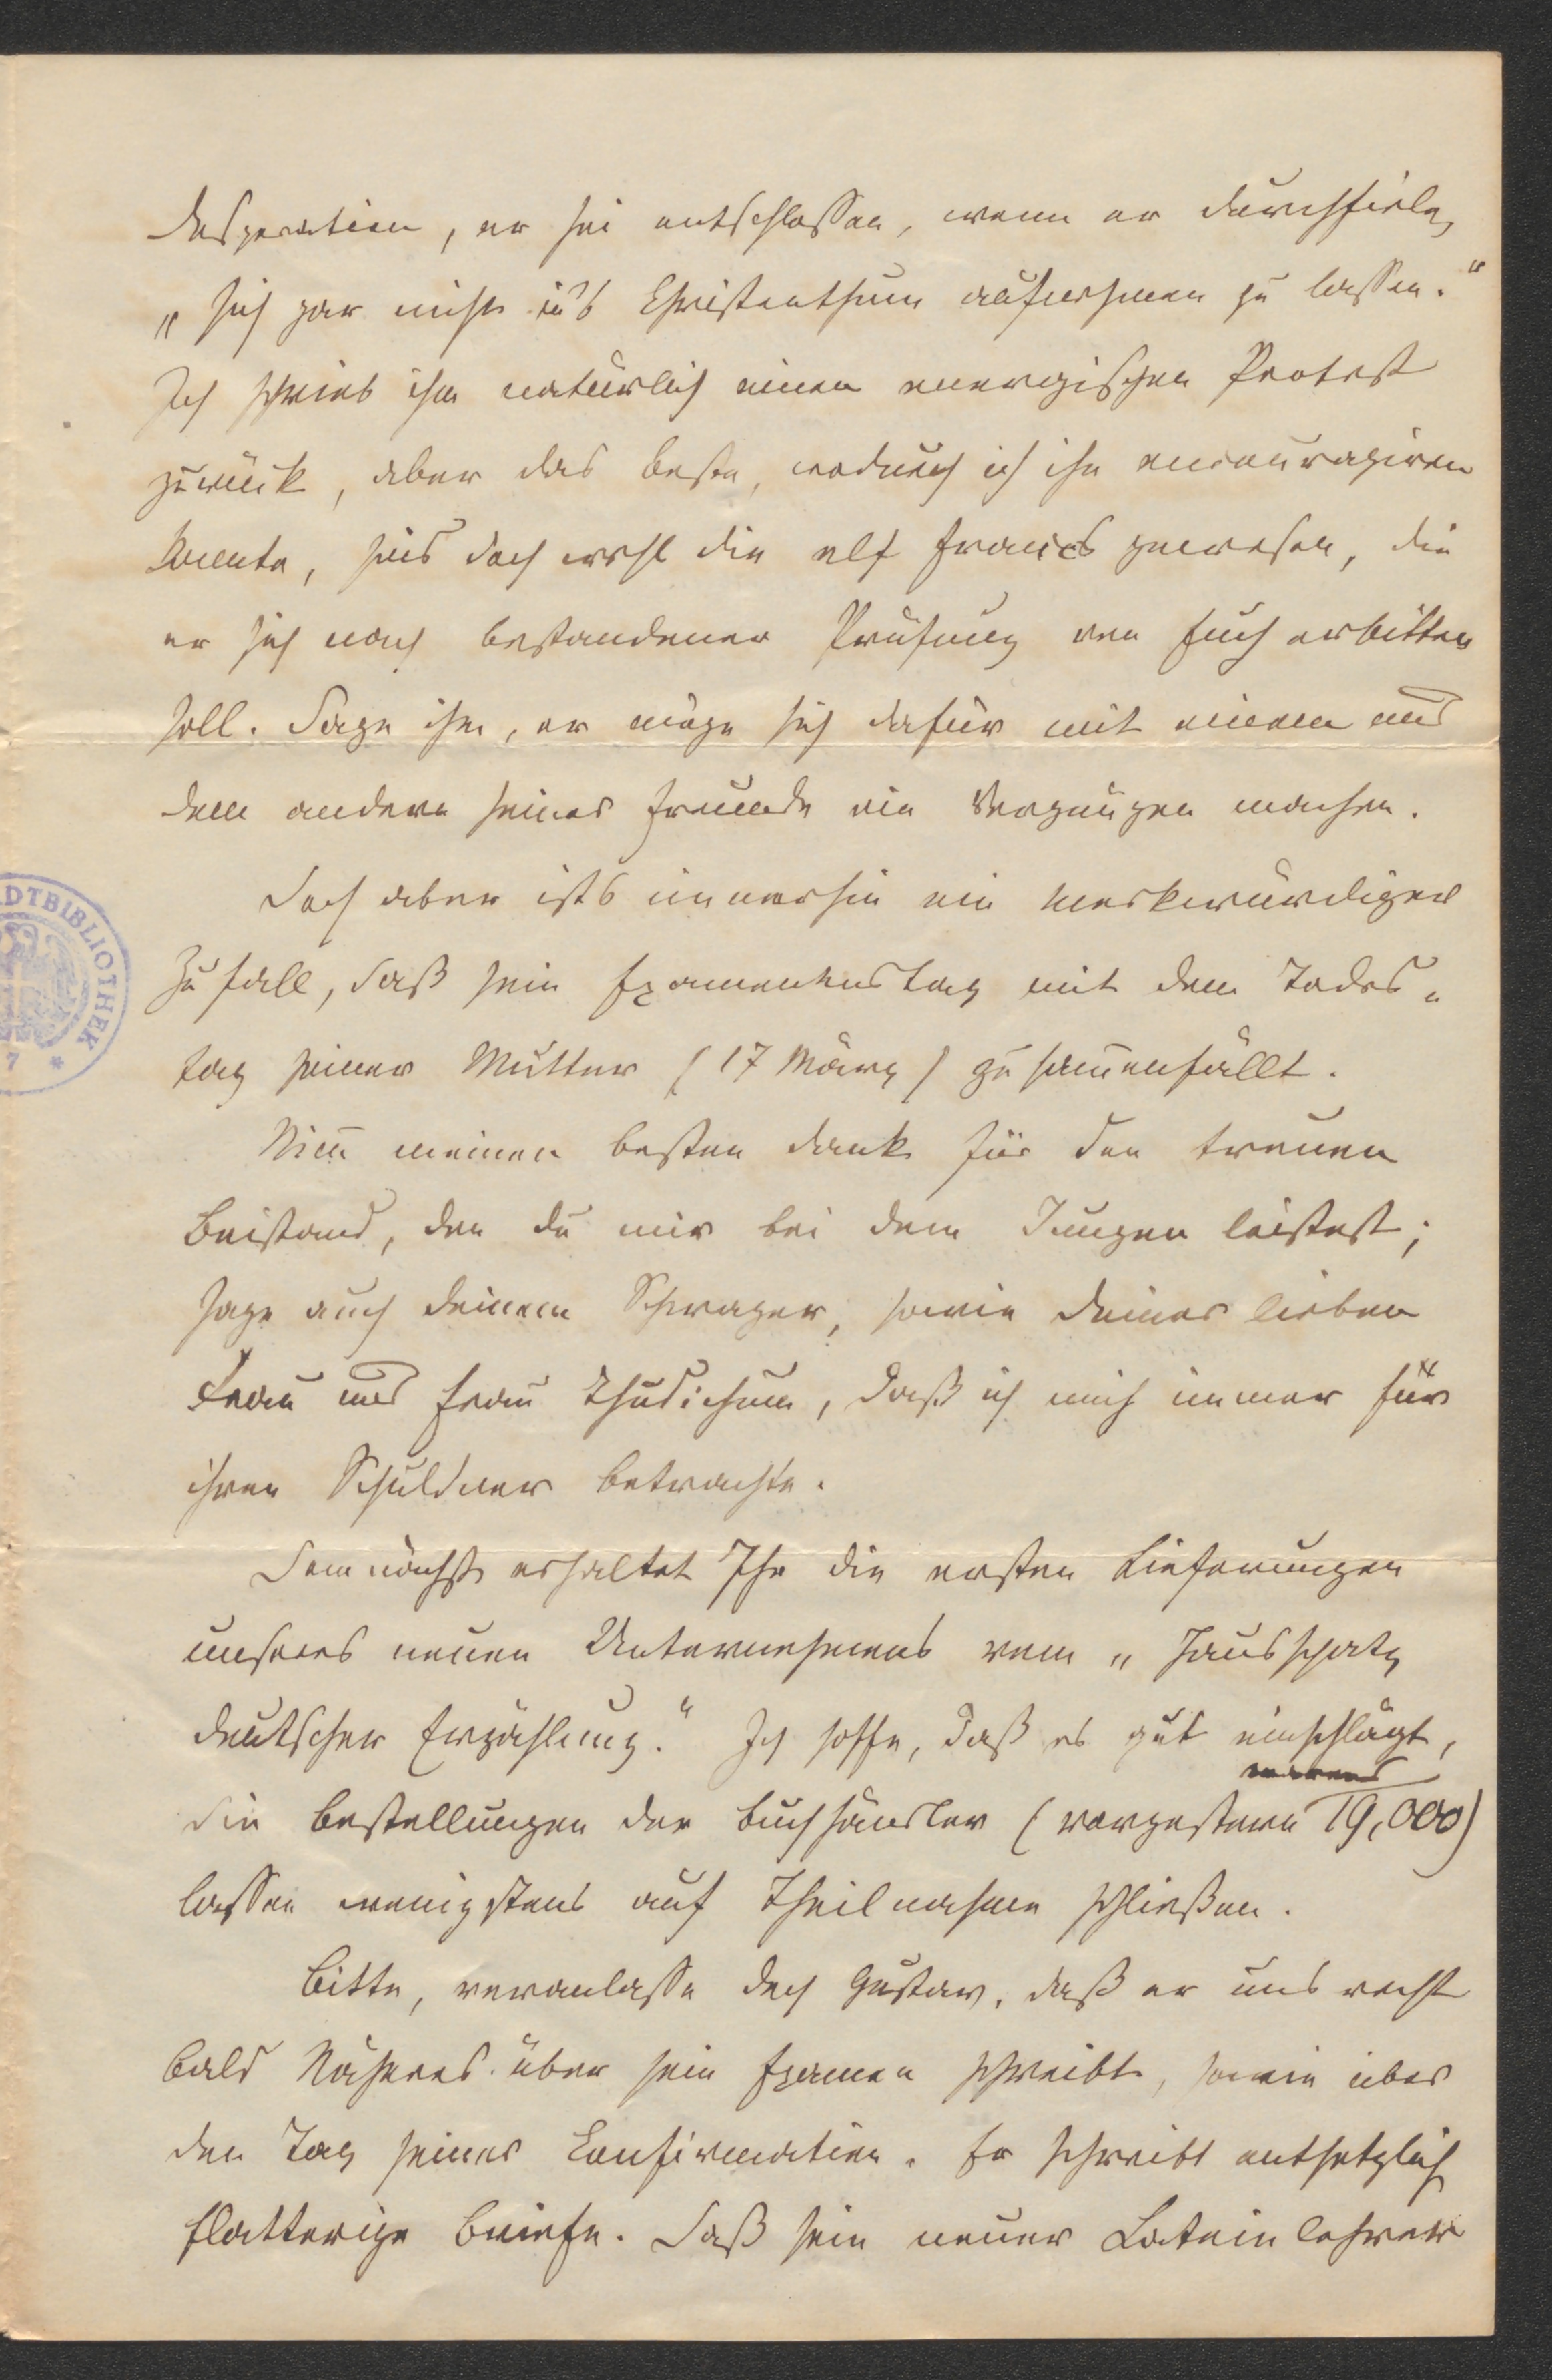 desperation, er sei entschlossen, wenn er durchfiele,
„sich gar nicht in's Christenthum aufnehmen zu lassen.“
Ich schrieb ihm natürlich einen energischen Protest
zurück, aber das beste, wodurch ich ihn encouragiren
konnte, seis doch wohl die elf francs gewesen, die
er sich nach bestandener Prüfung von Euch erbitten
soll. Sage ihm, er möge sich dafür mit einem und
dem andern seiner Freunde ein Vergnügen machen.
Doch aber ists immerhin ein merkwürdiger
Zufall, daß sein Examenstag mit dem Todes-
tag seiner Mutter (17 März) zusam̅enfällt.
Nim̅ meinen besten Dank für den treuen
Beistand, den du mir bei dem Jungen leistest;
sage auch deinem Schwager, sowie deiner lieben
Frau und Frau Thudichum, daß ich mich immer für
ihren Schuldner betrachte.
Demnächst erhaltet Ihr die ersten Lieferungen
unseres neuen Unternehmens vom „Hausschatz
deutscher Erzählung.“ Ich hoffe, daß es gut einschlägt,
die Bestellungen der Buchhändler (vorgestern 19,000)
lassen wenigstens auf Theilnahme schließen.
Bitte, veranlasse doch Gustav, daß er uns recht
bald Näheres über sein Examen schreibt, sowie über
den Tag seiner Confirmation. Er schreibt entsetzlich
flatterige Briefe. Daß sein neuer Lateinlehrer
DTBIBLIOTHEK
7 *